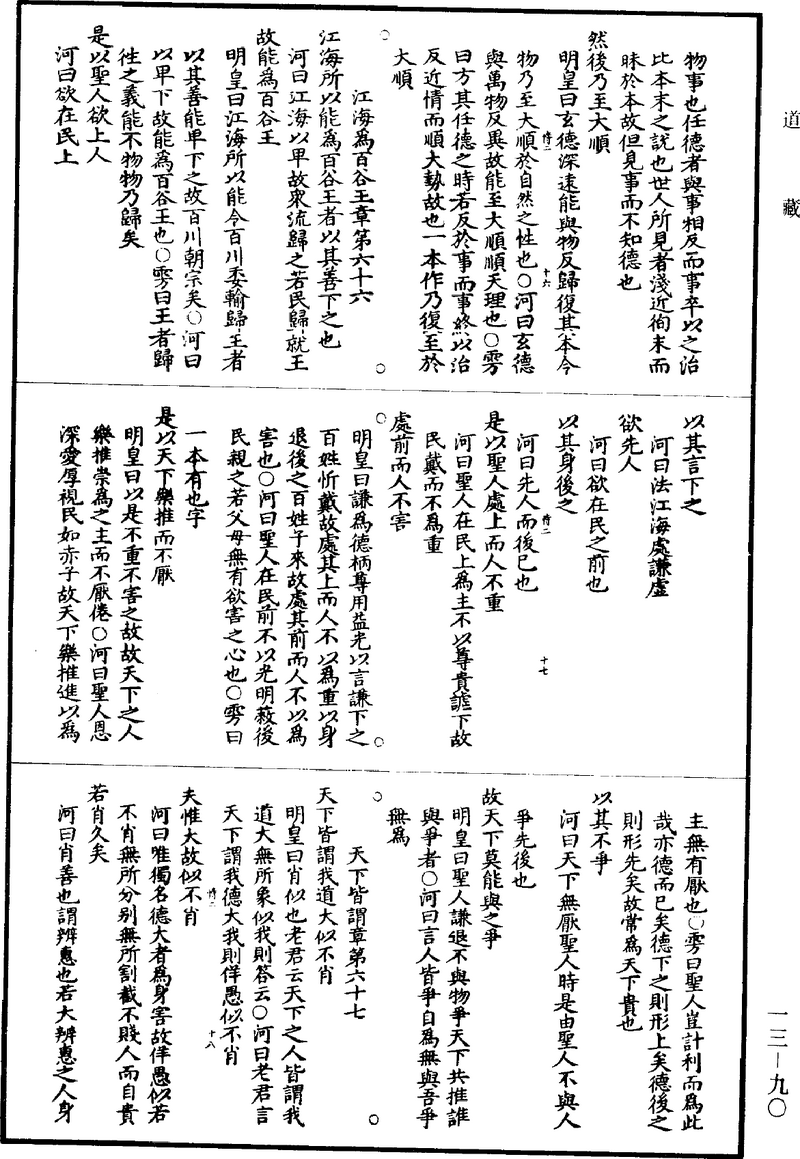 道藏
物事也任德者與事相反而事卒以之治
比本末之說也世人所見者淺近徇末而
昧於本故但見事而不知德也
然後乃至大順
明皇曰玄德深遠能與物反歸復其本令
物乃至大順於自然之性也○河曰玄德
與萬物反異故能至大順順天理也○雱
曰方其任德之時若反於事而事終以治
反近情而順大勢故也一本作乃復至於
大順
江海為百谷王章第六十六
江海所以能為百谷王者以其善下之也
河曰江海以卑故衆流歸之若民歸就王
故能為百谷王
明皇曰江海所以能令百川委輸歸王者
以其善能卑下之故百川朝宗矣○河曰
以卑下故能為百谷王也○雱曰王者歸
往之義能不物物乃歸矣
是以聖人欲上人
河曰欲在民上
以其言下之
河曰法江海處謙虛
欲先人
河曰欲在民之前也
以其身後之
河曰先人而後已也
是以聖人處上而人不重
河曰聖人在民上為主不以尊貴謔下故
民戴而不爲重
處前而人不害
明皇曰謙為德柄尊用益光以言謙下之
百姓忻戴故處其上而人不以為重以身
退後之百姓子來故處其前而人不以為
害也○河曰聖人在民前不以光明蔽後
民親之若父母無有欲害之心也○雱曰
一本有也字
是以天下樂推而不厭
明皇曰以是不重不害之故故天下之人
樂推崇為之主而不厭倦○河曰聖人恩
深愛厚視民如赤子故天下樂推進以爲
主無有厭也○雱曰聖人豈計利而為此
哉亦德而已矣德下之則形上矣德後之
則形先矣故常為天下貴也
以其不爭
河曰天下無厭聖人時是由聖人不與人
爭先後也
故天下莫能與之爭
明皇曰聖人謙退不與物爭天下共推誰
與爭者○河曰言人皆爭自為無與吾爭
無為
天下皆謂章第六十七
天下皆謂我道大似不肖
明皇曰肖似也老君云天下之人皆謂我
道大無所象似我則答云○河曰老君言
天下謂我德大我則佯愚似不肖
夫惟大故似不肖
河曰唯獨名德大者為身害故佯愚似若
不肖無所分別無所割截不賤人而自貴
若肖久矣
河曰肖善也謂辨惠也若大辨惠之人身
一三—九○